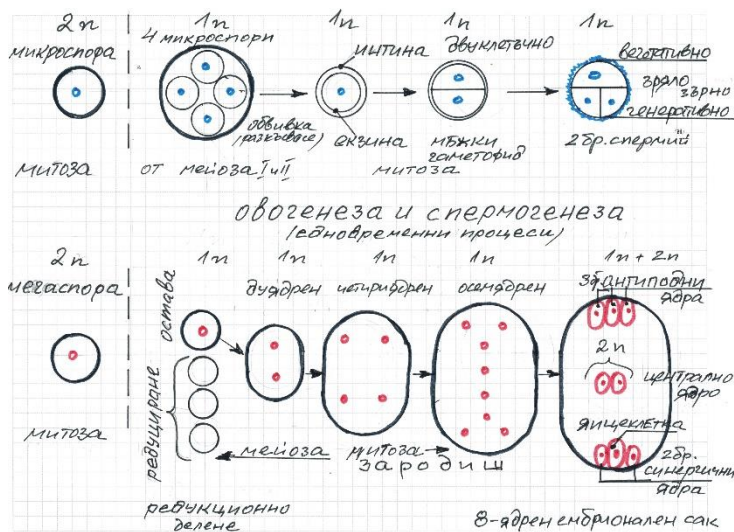 2n
микроспора
митоза
1n
4 микроспори
обвивка
(разкъсва се)
от мейоза I и II
1n
интина
екзина
1n
двуклетъчно
мъжки
гаметофит
митоза
1n
вегетативно
зряло
зърно
генеративно
2бр. спермий
овогенеза и спермогенеза
(едновременни процеси)
2n
мегаспора
митоза
1n
остава
редуциране
мейоза
редукционно
делене
1n
двуядрен
1n
четириядрен
митоза
1n
осемядрен
зародиш
1n + 2n
3бр. антиподни
ядра
2n
централно
ядро
яйцеклетка
2бр.
синергични
ядра
8-ядрен ембрионален сак